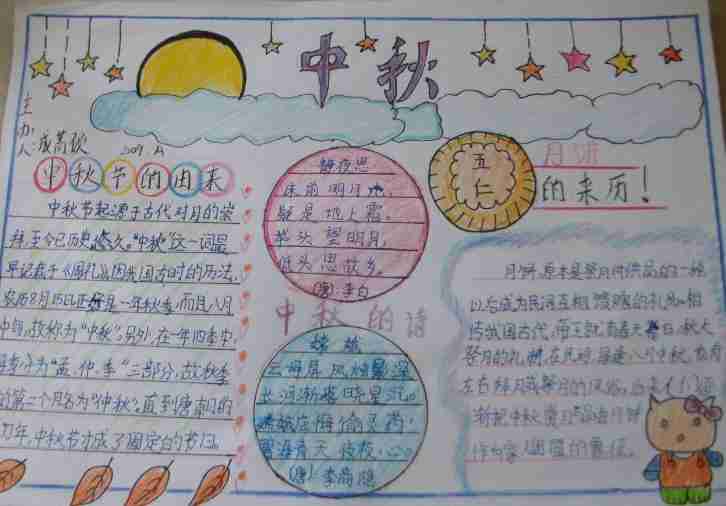 中秋
主办人:
中秋节的由来
中秋节起源于古代对月的崇
拜,至今已历史悠久。“中秋”这一词最
早记载于《周礼》,因我国古时的历法,
农历8月15日正好是一年秋季,而且八月
中旬,故称为“中秋”,另外,在一年四季中
季分为“孟、仲、季”三部分,故秋季
的第二个月名为“仲秋”,直到唐朝的
初年,中秋节才成了固定的节日。
静夜思
床前明月光,
疑是地上霜。
举头望明月,
低头思故乡。
(唐)李白
中秋的诗
嫦娥
云母屏风烛影深
长河渐落晓星沉。
嫦娥应悔偷灵药,
碧海青天夜夜心。
(唐)李商隐
五仁
月饼
的来历!
月饼原本是祭月时供品的一种
以后成为民间互相馈赠的礼品。相
传我国古代,帝王就有春天祭日,秋天
祭月的礼制,在民间,每逢八月中秋,也有
左右拜月或祭月的风俗,后来人们逐
渐把中秋赏月与品尝月饼
作为家人团圆的象征。